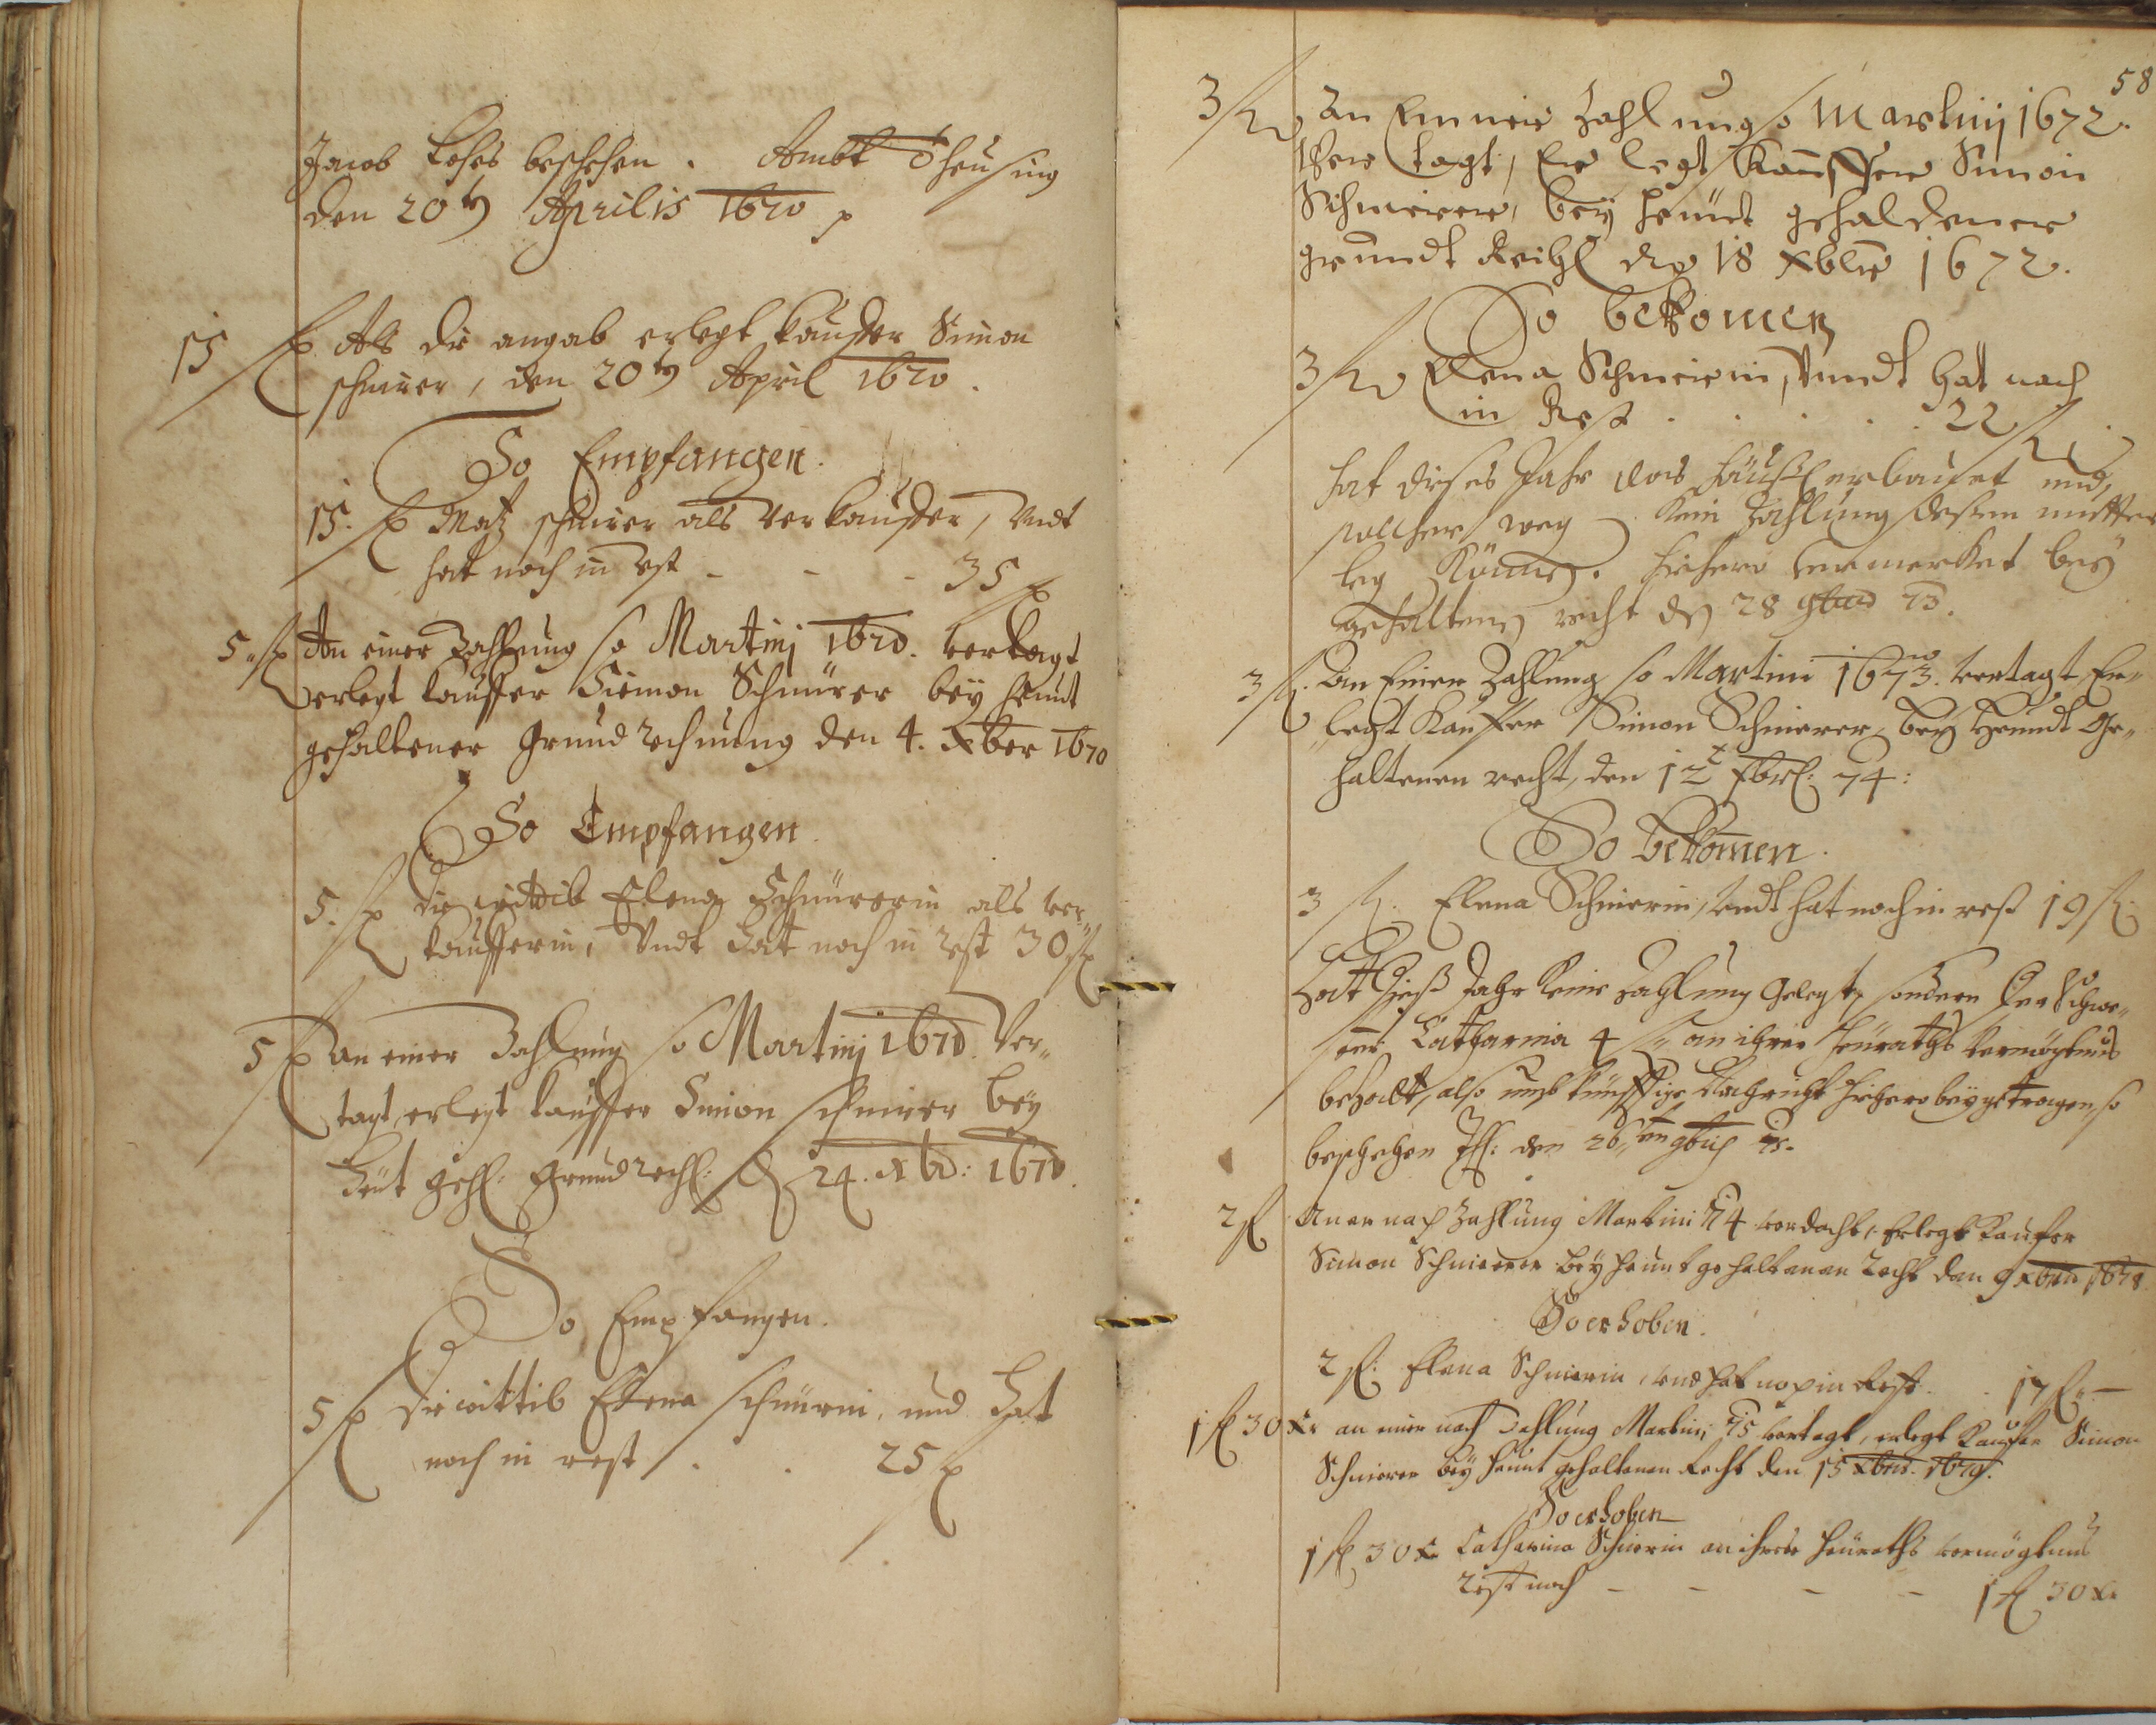 Jacob Lohes beschehen. Ambt Theusing
den 20t Aprilis 1670
15 fl Als die angab erlegt kauffer Simon
schnirer, den 20t April 1670.
So Empfangen.
15. fl Matz schnirer als verkauffer, Vndt
hat noch in rest - - - 35 fl
5. fl An einer Zahlung so Martinj 1670. vertagt
erlegt kauffer Siemon Schnürer bey heundt
gehaltener Grund rechnung den 4. Xber 1670
So Empfangen
5. fl die wittib Elena Schnürerin als ver„
kaufferin, Vndt hat noch in rest 30 fl
5 fl an einer Zahlung so Martinj 1671. Ver„
tagt, erlegt kauffer Simon schnirer bey
heut gehl: Grund rechl: d 24. Xbr: 1671.
So Empfangen.
5 fl die wittib Elena schnürin, und hat
noch in rest . . 25 fl
58
3 fl An Einner Zahlung so Martinj 1672.
Ver tagt, Er legt Kauffer Simon
Schnierer, bey heundt gehaldener
grundt Reihl den 18 Xbris 1672.
So bekomen
3 fl Elena Schnierin, Vundt hat nach
in Rest . . . . . 22 fl
hat dieses Jahr das heüßl erbauet und
solcher weg Kein Zahlung dessen mitter
leg Könne. hiehero vermerket bey
gehalten recht den 28 9bris 73.
3 fl. An Einer Zahlung so Martini 1673. vertagt, Er„
„legt Kauffer Simon Schnierer, bey heundt Ge„
haltenen recht, den 12t Xbrl: 74:
So bekomen.
3 fl. Elena Schnierin, Vndt hat noch in rest 19 fl.
Hatt dieß Jahr Keine Zahlung gelegt, sondern der Schwe„
ster Catharina 4 fl an ihren heuraths Vermögens
bezalt, also umb künfftige Nachricht hiehero beygetragen, so
beschehen den 26ten 9bris 75.
2 fl An er nach Zahlung Martini 74 verdacht, Erlegt Kaufer
Simon Schnierer bey heunt gehaltenen Recht den 9 Xbris 1678
So erhoben.
2 fl. Elena Schnierin, und hat noch in Rest . 17 fl. —
1 fl 30 Xr an einer nach Zahlung Martini 75 vertagt, erlegt Kaufer Simon
Schnierer bey heunt gehaltenen Recht den 15 Xbris. 1679.
So erhoben
1 fl 30 X Catharina Schnierin an ihren heuraths vermögens
rest noch - - - - 1 fl 30 Xr